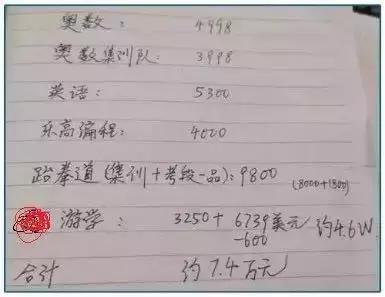 奥数： 4998
奥数集训队： 3998
英语： 5300
乐高编程： 4000
跆拳道（集训+考段一品）：9800
(8000+1800)
游学： 3250+6739美元 约4.6W
-600
合计 约7.4万元